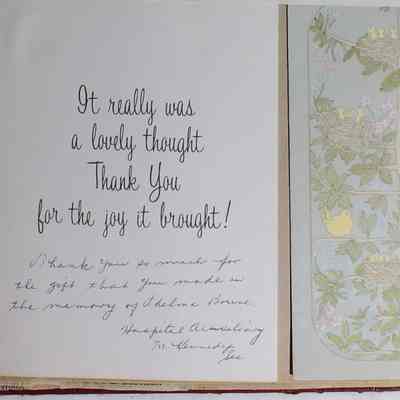 It really was
a lovely thought
Thank You
for the joy it brought!
Thank you so much for
the gift that you made in
the memory of Thelma
Hospital
M. Kennedy
Sec